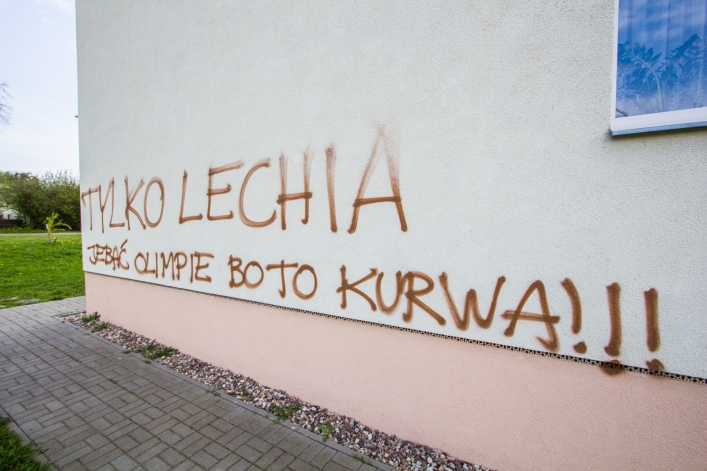 TYLKO LECHIA
JEBAĆ OLIMPIE BO TO KURWA!!!